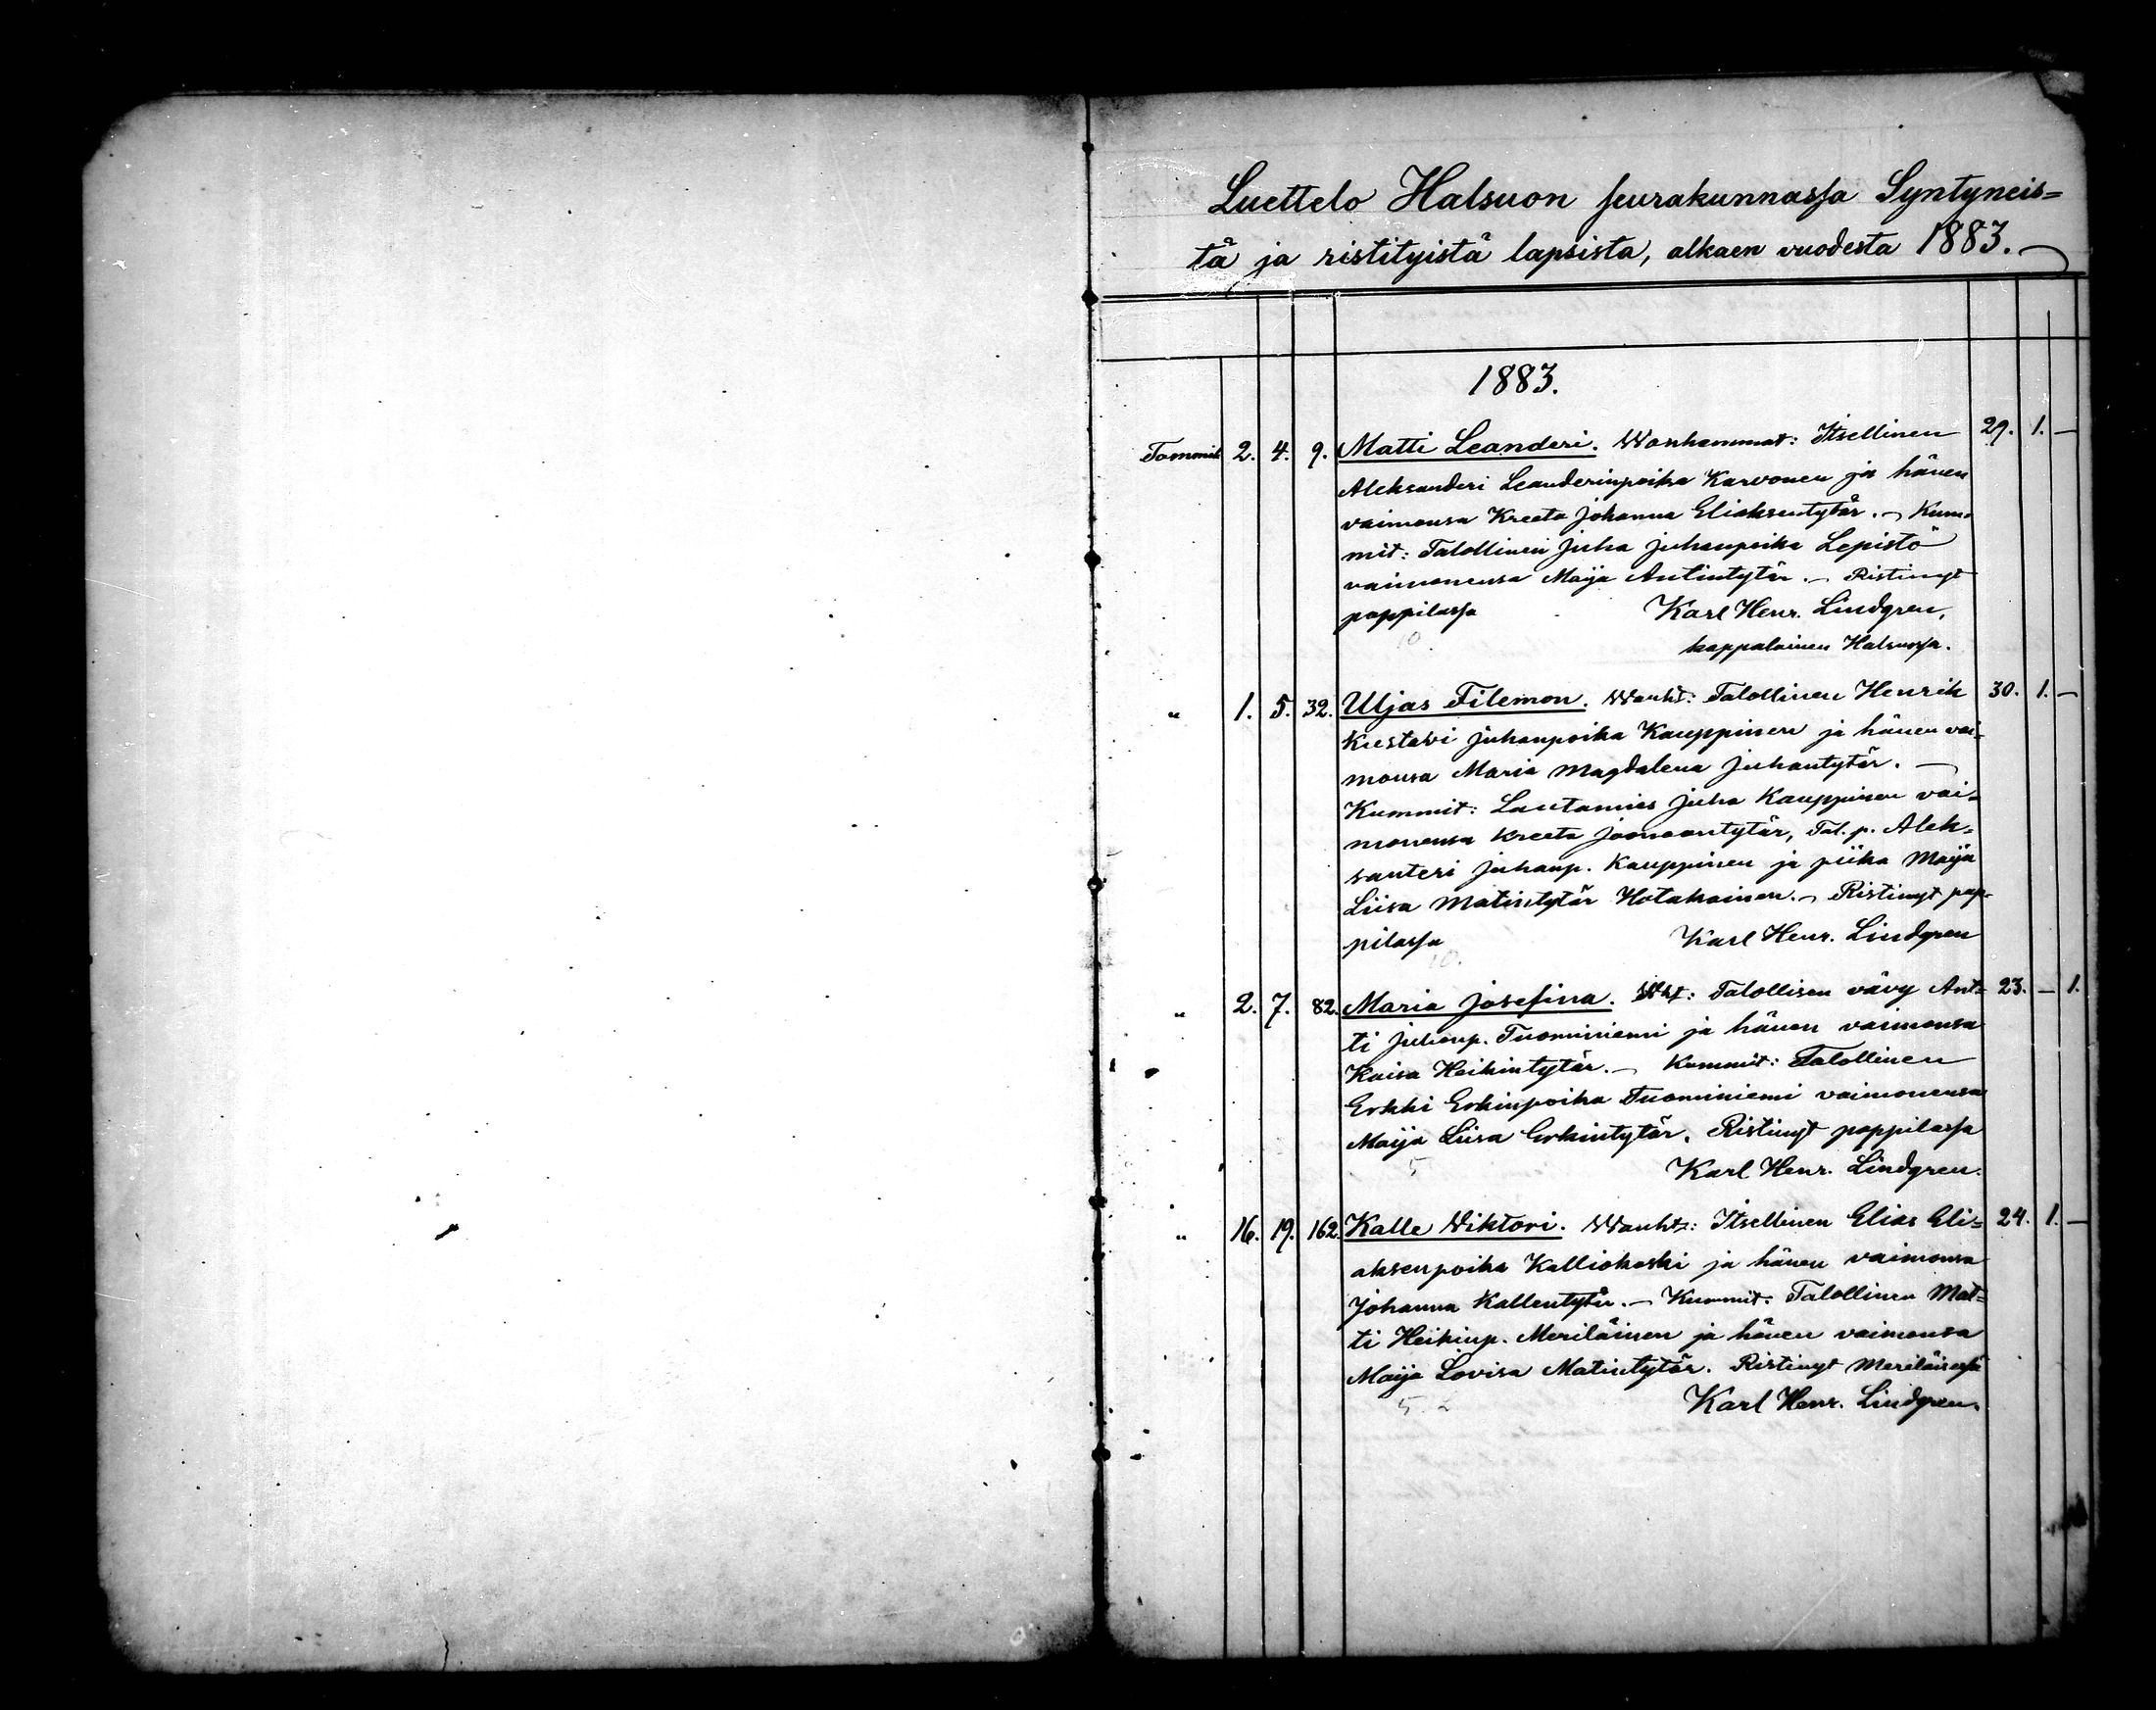 Luettelo Halsuon seurakunnassa Syntyneis=
tä ja ristityistä lapsista, alkaen vuodesta 1883.
1883.
Tammik 2. 4. 9. Matti Leanderi. Wanhemmat: Itsellinen 29. 1. —
Aleksanderi Leanderinpoika Karvonen ja hänen
vaimonsa Kreeta Johanna Eliaksentytär. — Kum-
mit: Talollinen Juha Juhanpoika Lepistö
vaimonensa Maija Antintytär. — Ristinyt
pappilassa Karl Henr. Lindgren,
10.
kappalainen Halsuossa.
" 1. 5. 32. Uljas Filemon. Wanht: Talollinen Henrik 30. 1. —
Kustavi Juhanpoika Kauppinen ja hänen vai=
monsa Maria Magdalena Juhantytär. —
Kummit: Lautamies Juha Kauppinen vai=
monensa Kreeta Joonaantytär, Tal. p. Alek=
santeri Juhanp. Kauppinen ja piika Maija
Liisa Matintytär Hotakainen. — Ristinyt pap-
pilassa Karl Henr. Lindgren
10.
" 2. 7. 82. Maria Josefina. Wht: Talollisen vävy Ant= 23. — 1.
ti Juhanp. Tuominiemi ja hänen vaimonsa
Kaisa Heikintytär. — Kummit: Talollinen
Erkki Erkinpoika Tuominiemi vaimonensa
Maija Liisa Erkintytär. Ristinyt pappilassa
5
Karl Henr. Lindgren.
" 16. 19. 162. Kalle Wiktori. Wanht: Itsellinen Elias Eli= 24. 1. —
aksenpoika Kalliokoski ja hänen vaimonsa
Johanna Kallentytär. — Kummit: Talollinen Mat=
ti Heikinp. Meriläinen ja hänen vaimonsa
Maija Lovisa Matintytär. Ristinyt Meriläisessä
5.
Karl Henr. Lindgren.